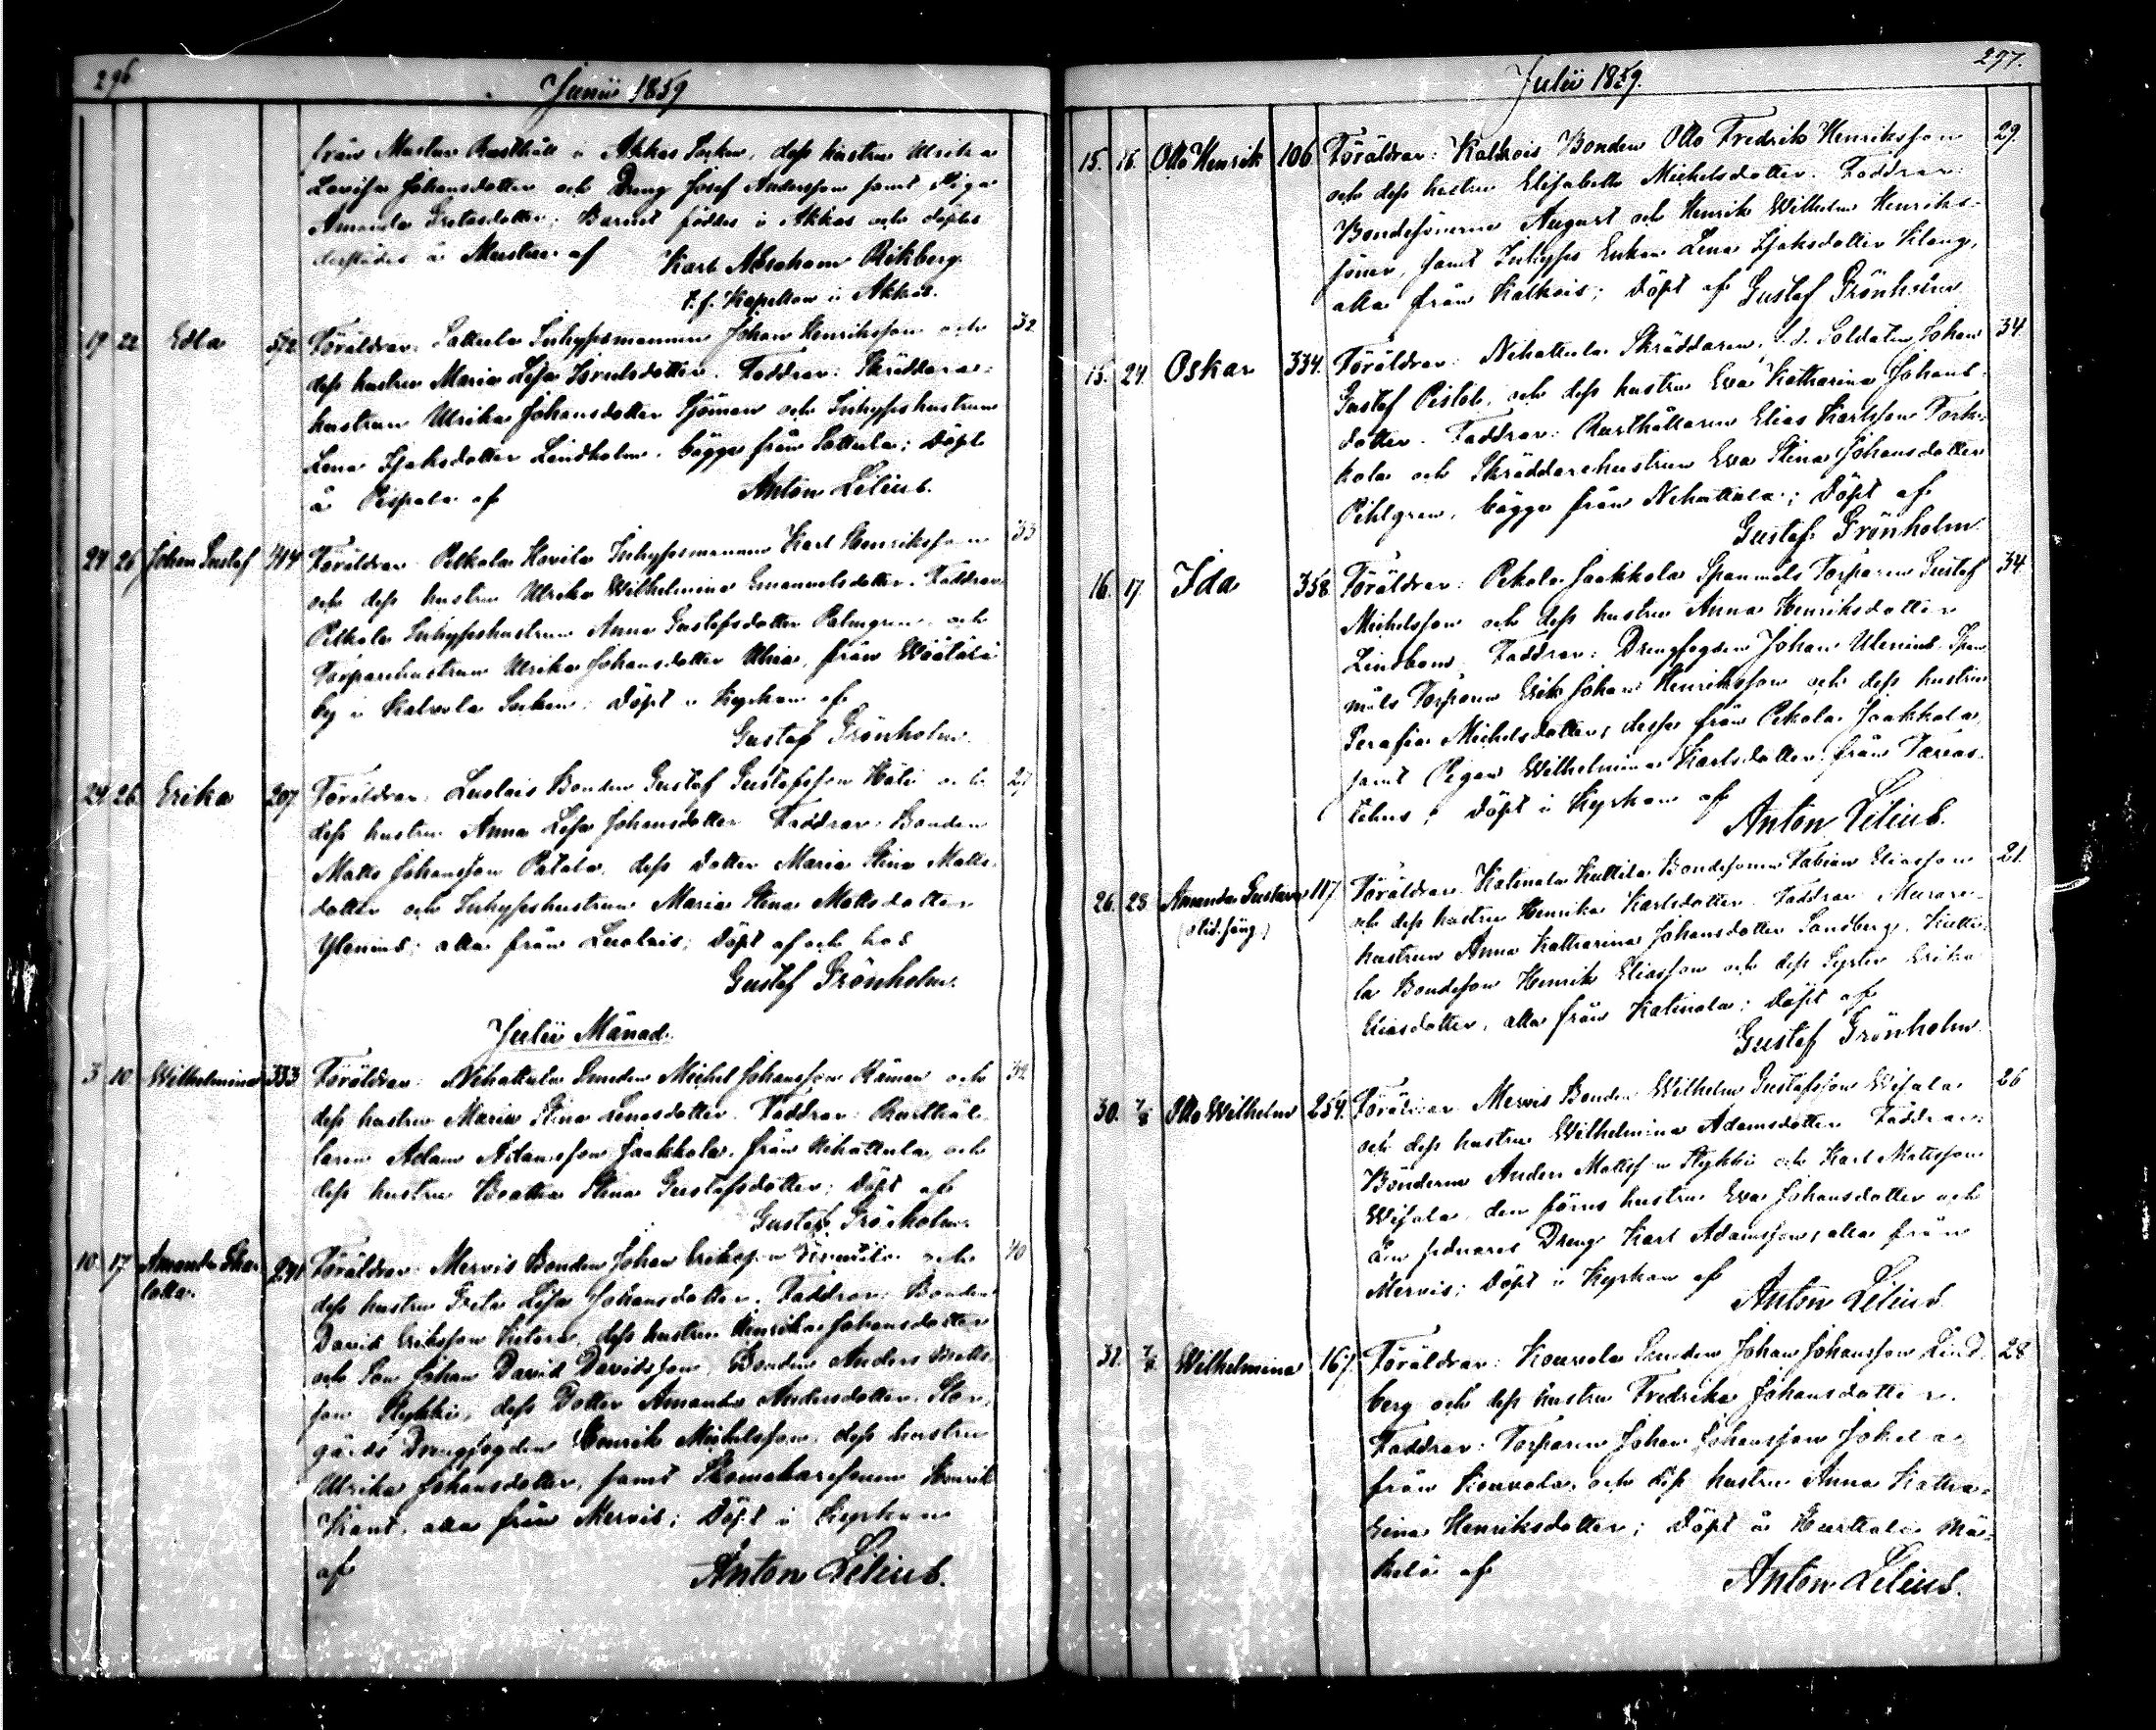 296
Junii 1859
från Mustue Rusthåll i Akkas Socken, dess hustru Ulrika
Lovisa Johansdotter och Dreng Josef Andersson samt Piga
Amanda Gretasdotter; Barnet föddes i Akkas och döptes
derstädes å Mustue af Karl Abraham Rikberg
t.f. Kapellan i Akkas.
19 22 Edla 572 Föräldrar: Sattula Inhysesmannen Johan Henriksson och 32
dess hustru Maria Lisa Israelsdotter. Faddrar: Skräddare-
hustrun Ulrika Johansdotter Sjöman och Inhyseshustrun
Lena Isaksdotter Lindholm, bägge från Sattula; Döpt
å Pispala af Anton Lilius.
24 26 Johan Gustaf 414 Föräldrar: Pelkola Inhysesmannen Karl Henriksson 33
och dess hustru Ulrika Wilhelmina Emanuelsdotter. Faddrar:
Pelkola Inhyseshustrun Anna Gustafsdotter Palmgren och
Torparehustrun Ulrika Johansdotter från
by i Kalvola Socken; Döpt i Kyrkan af
Gustaf Grönholm.
24 26 Erika 297 Föräldrar: Luolais Bonden Gustaf Gustafsson och 27
dess hustru Anna Lisa Johansdotter. Faddrar: Bonden
Matts Johansson Patala, dess dotter Maria Stina Matts-
dotter och Inhyseshustrun Maria Stina Mattsdotter
Ylenius, alla från Luolais; Döpt af och hos
Gustaf Grönholm.
Julii Månad.
3 10 Wilhelmina 333 Föräldrar: Nihattula Smeden Michel Johansson Råman och 32
dess hustru Maria Stina Enosdotter. Faddrar: Rusthål-
laren Adam Adamsson Jaakkola, från Nihattula, och
dess hustru Beatha Stina Gustafsdotter; Döpt af
Gustaf Grönholm.
10 17 Amanda Char- 241 Föräldrar: Mervis Bonden Johan Eriksson och 40
lotta. dess hustru Greta Lisa Johansdotter. Faddrar: Bonden
David Eriksson dess hustru Henrika Johansdotter
och Son Johan David Davidsson, Bonden Anders Matts-
son Stykki, dess Dotter Amanda Andersdotter, Stor-
gårds Drengfogden Henrik Michelsson, dess hustru
Ulrika Johansdotter, samt Skomakaresonen Henrik
Kant, alla från Mervis; Döpt i Kyrkan
af Anton Lilius.
297.
Julii 1859.
15. 16. Otto Henrik 106 Föräldrar: Kalkois Bonden Otto Fredrik Henriksson 29.
och dess hustru Elisabeth Michelsdotter. Faddrar:
Bondesönerne August och Henrik Wilhelm Henriks-
söner, samt Inhyses Enkan Lena Isaksdotter Klang,
alla från Kalkois; Döpt af Gustaf Grönholm
15. 24. Oskar 334. Föräldrar: Nihattula Skräddaren, f.d. Soldaten Johan 34.
Gustaf Pistol, och dess hustru Eva Katharina Johans-
dotter. Faddrar: Rusthållaren Elias Karlsson Tork-
kola och Skräddarehustrun Eva Stina Johansdotter
Pihlgren, bägge från Nihattula; Döpt af
Gustaf Grönholm.
16. 17. Ida 358 Föräldrar: Pekola Jaakkola Spanmåls Torparen Gustaf 34
Michelsson och dess hustru Anna Henriksdotter
Lindbom. Faddrar: Drengfogden Johan Ulenius, Span-
måls Torparen Erik Johan Henriksson och dess hustru
Serafia Michelsdotter, desse från Pekola Jaakkola,
samt Pigan Wilhelmina Karlsdotter från Tavas-
tehus; Döpt i Kyrkan af
Anton Lilius.
26. 28 Amanda Gustava 117 Föräldrar: Katinala Kuttila Bondesonen Fabian Eliasson 21.
och dess hustru Henrika Karlsdotter. Faddrar: Murare-
hustrun Anna Katharina Johansdotter Sandberg, Kutti-
la Bondeson Henrik Eliasson och dess Syster Erika
Eliasdotter, alla från Katinala; Döpt af
Gustaf Grönholm
30. 7/8 Otto Wilhelm 254. Föräldrar: Mervis Bonden Wilhelm Gustafsson Wisala 26
och dess hustru Wilhelmina Adamsdotter. Faddrar:
Bönderne Anders Mattsson Stykki och Karl Mattsson
Wisala, den förres hustru Eva Johansdotter och
den sednares Dreng Karl Adamsson, alla från
Mervis; Döpt i Kyrkan af
Anton Lilius
31. 7/8 Wilhelmina 167. Föräldrar: Kouvola Smeden Johan Johansson Lind- 28
berg och dess hustru Fredrika Johansdotter.
Faddrar: Torparen Johan Johansson Jokela
från Kouvola, och dess hustru Anna Katha-
rina Henriksdotter; Döpt å Hurttala Mä-
kelä af Anton Lilius.